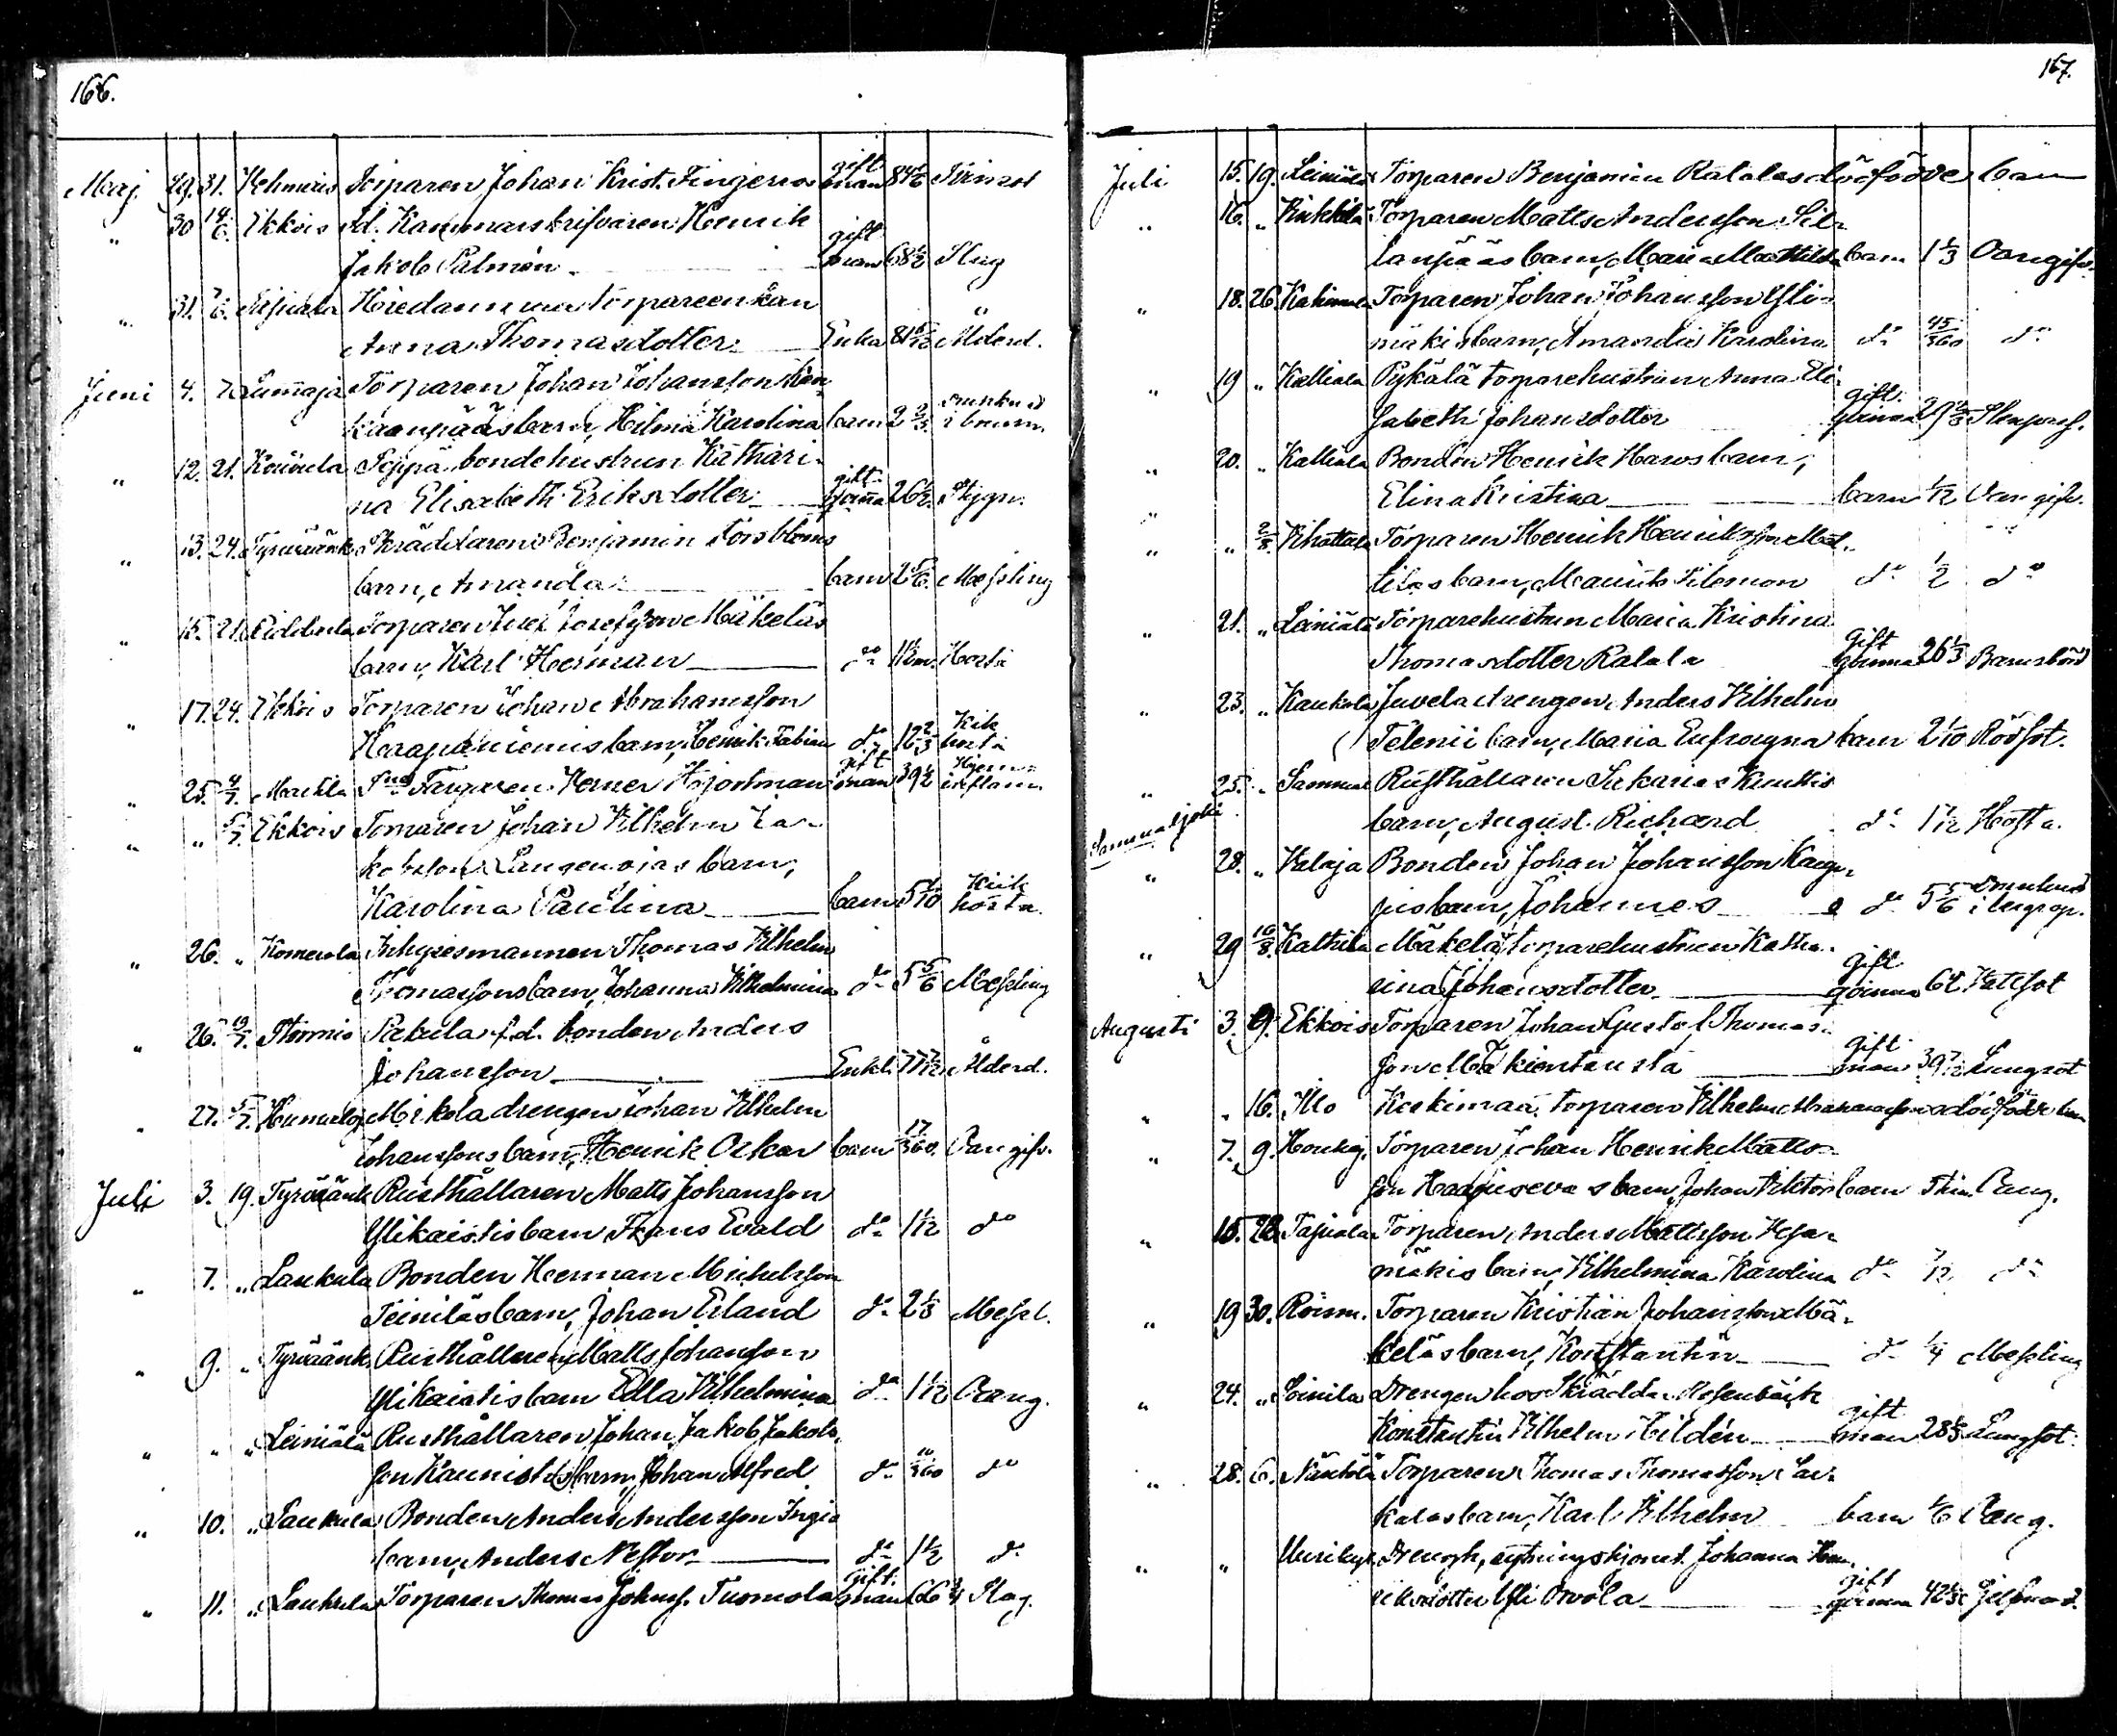 166.
Maj. 29. 31. Kehmiris Torparen Johan Krist. Fingerros gift man 84 1/6
" 30 14/6. Ekkois f.d. Kammarskrifvaren Henrik
Jakob Palmén gift man 68 1/2 Slag
" 31. 7/6. Horedamm torpareenkan
Anna Thomasdotter Enka 81 5/12 Ålderd.
Juni 4. 7. Lummaja Torparen Johan Johansson
barn, Hilma Karolina barn 2 2/3. drunknad i brunn
" 12. 21. Kouvola Seppä bondehustrun Kathari-
na Elisabeth Eriksdotter gift qvinna 26 1/2.
" 13. 24. Tyrväänk. Skräddaren Benjamin Forsbloms
barn, Amanda barn 2 5/6. Messling
" 15. 21. Torparen Josefsson Mäkeläs
barn, Karl Herman do 1 1/2 m. Hosta
" 17. 24. Ekkois Torparen Johan Abrahamsson
barn, Henrik Fabian do 12 2/3 Kikhosta
" 25. 4/7. Marttila Färgaren Werner Hjortman gift man 39 1/2 Hjerninflam.
" " 5/7. Ekkois Torparen Johan Vilhelm Ja-
kobsson Laugenojas barn,
Karolina Paulina barn 5 1/10 Kikhosta
" 26. " Inhysesmannen Thomas Vilhelm
Thomassons barn, Johanna Vilhelmina do 5 5/6 Messling
" 26. 19/7. Stormis Pakula f.d. bonden Anders
Johansson Enkl. 77 7/12 Ålderd.
" 27. 5/7. Mikola drengen Johan Vilhelm
Johanssons barn, Henrik Oskar barn 17/360. Oangifv.
Juli 3. 19. Tyrväänk. Rusthållaren Matts Johansson
Ylikaistis barn Frans Evald do 1 1/12 do
" 7. " Laukula Bonden Herman Michelsson
Teiniläs barn, Johan Erland do 2 1/8 Messl.
" 9. " Tyrväänk. Rusthållaren Matts Johansson
Ylikaistis barn Edla Vilhelmina do 1 1/12 Oang.
" " " Leiniälä Rusthållaren Johan Jakob Jakobs-
son Kaunistos barn, Johan Alfred do 10/360 do
" 10. " Laukula Bonden Anders Andersson Ingis
barn, Anders Nestor do 1 1/2 do
" 11. " Laukula Torparen Thomas Johnss. Tuomola gift man 66 3/4 Slag.
167.
Juli 15. 19. Leiniälä Torparen Benjamin Ratalas dödfödde barn
" 16. " Kinkkilä Torparen Matts Andersson Sil-
lanpääs barn, Maria Mathilda barn 1 1/3 Oangifv.
" 18. 26. Torparen Johan Johansson Yli-
mäkis barn, Amanda Karolina do 45/360 do
" 19 " Kalliala Pykälä torparehustrun Anna Eli-
sabeth Johansdotter gift qvinna
" 20. " Kalliala Bonden Henrik Haros barn,
Elina Kristina barn 1/12 Oangifv.
" " 2/8. Kihattula Torparen Henrik Henriksson Mat-
tilas barn, Maurits Filemon do 1/2 do
" 21. " Leiniälä Torparehustrun Maria Kristina
Thomasdotter Ratala gift qvinna 26 1/3 Barnsbörd
" 23. " Kaukola Juvela drengen Anders Vilhelm
Telenii barn, Maria Eufrosyna barn 2 1/10 Rödsot.
" 25. " Sammal Rusthållaren Sakarias Knuttis
Sammaljoki barn, August Richard do 1 7/12 Hosta.
" 28. " Valaja Bonden Johan Johansson
barn, Johannes do 5 5/6 drunknad
" 29 16/8. Kathila Mäkelä torparehustrun Katha-
rina Johansdotter gift qvinna 62 Vattsot
Augusti 3. 9. Ekkois Torparen Johan Gustaf Thomas-
son Mäkientausta gift man 39 7/12 Lungsot
" " 16. Illo Keskimaa torparen Vilhelm Abrahamsson dödfödde barn
" 7. 9. Houhaj. Torparen Johan Henrik Matts-
son barn Johan Viktor barn 5 tim. Oang.
" 15. 23. Tajuala Torparen Anders Mattsson Vesa-
mäkis barn, Vilhelmina Karolina do 7/12 do
" 19 30. Roism. Torparen Kristian Johansson Mä-
keläs barn, Konstantin do 1/4 Messling
" 24. " Soinila Drengen hos Skrädd.
Konstantin Vilhelm Hildén gift man 28 Lungsot.
" 28. 6. Näntölä Torparen Thomas Thomasson
barn, Karl Vilhelm barn 1/6 Oang.
" " Johanna Hen-
riksdotter Yli Orvola gift qvinna 42